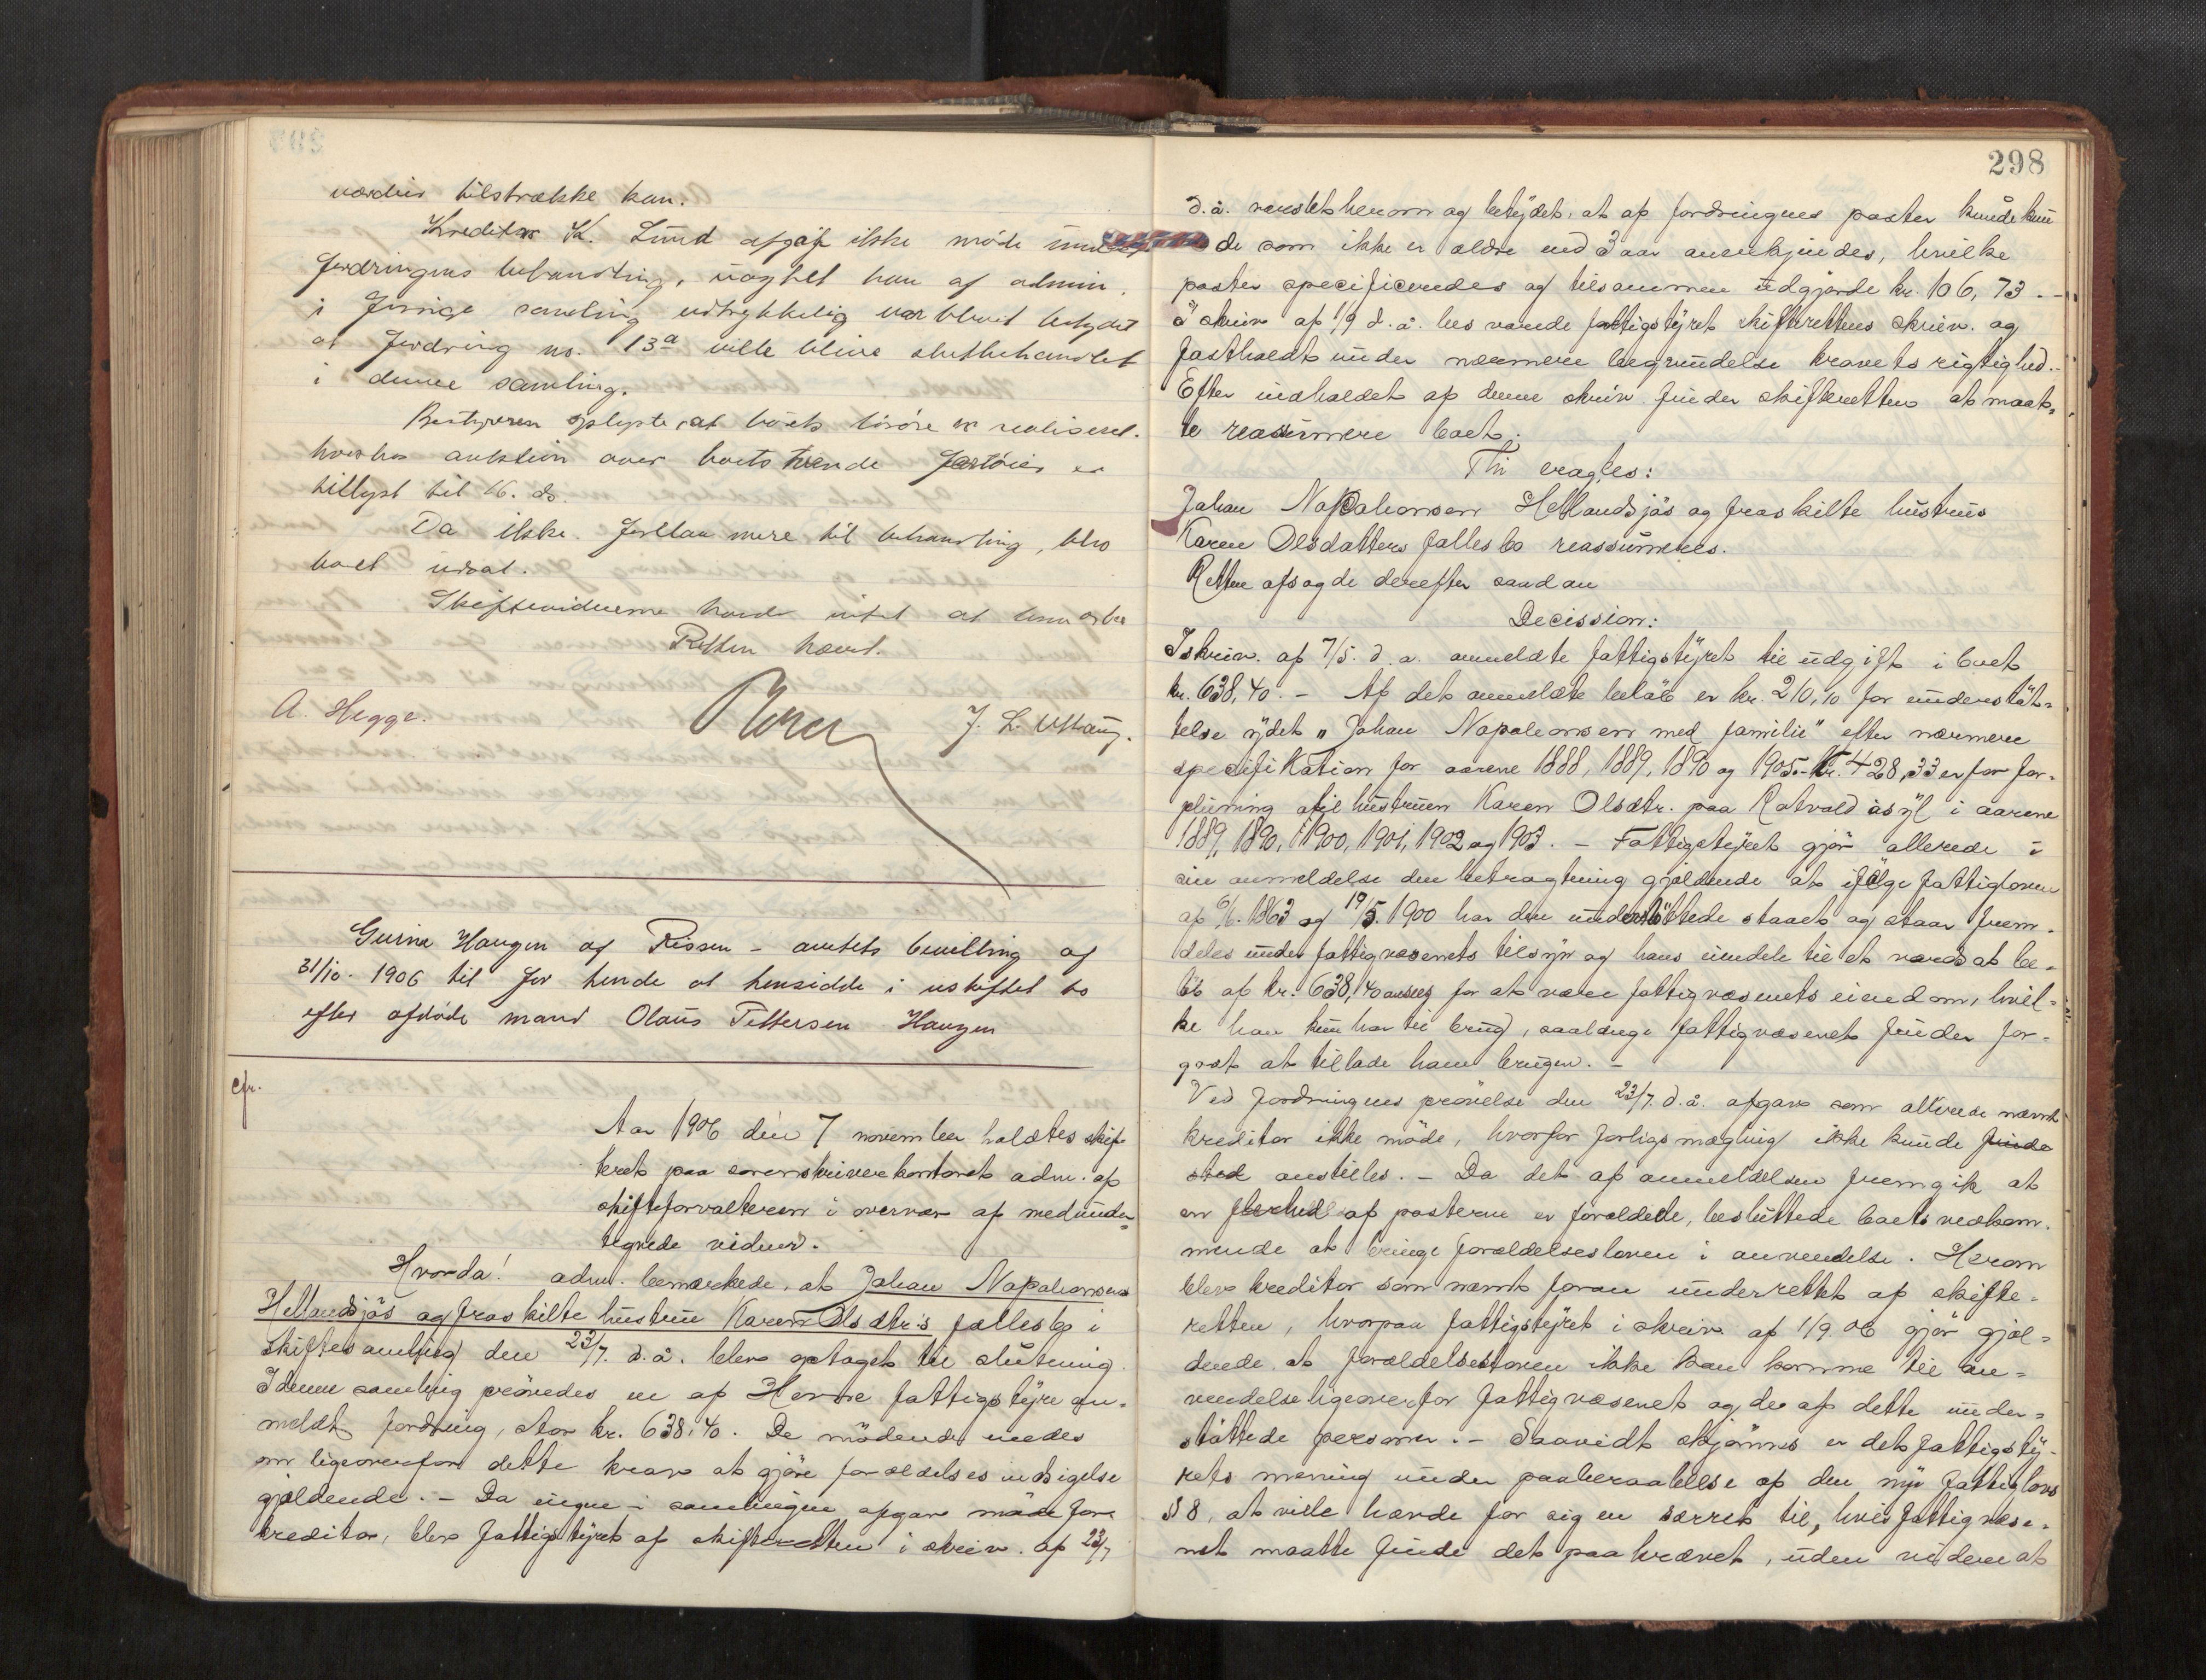 værdier tilstrække kan.
Kreditor K. Lund afgaf ikke møde under
fordringens behandling, uagtet han af admin.
i forrige samling udtrykkelig var blevet betydet
at fordring no. 13a ville blive slutbehandlet
i denne samling.
Bestyreren oplyste, at boets løsøre er realiseret.
hvorhos auktion over boets tvende fartøier er
tillyst til 16. ds.
Da ikke forelaa mere til behandling, blev
boet udsat.
Skiftevidnerne havde intet at bemærke
Retten hævet.
A. Hegge.
J. L. Uttaug.
Gurine Haugen af Rissen - amtets bevilling af
31/10. 1906 til for hende at hensidde i uskiftet bo
efter afdøde mand Olaus Pettersen Haugen
cfr.
Aar 1906 den 7 november holdtes skif-
teret paa sorenskriverkontoret adm. af
skifteforvalteren i overvær af medunder-
tegnede vidner.
Hvorda! adm. bemærkede, at Johan Napoleonsens
Hellandsjös og fraskilte hustru Karen Olsdtr.s fællesbo i
skiftesamling den 23/7. d.å. blev optaget til slutning.
I denne samling prøvedes en af Hevne fattigstyre an-
meldt fordring, stor kr. 638,40. De mødende enedes
om ligeoverfor dette krav at gjøre forældelsesindsigelse
gjældende. - Da ingen i samlingen afgav møde for
kreditor, blev fattigstyret af skifteretten i skriv. af 23/7
298
d.å. varslet herom og betydet, at af fordringens poster kunde kun
de som ikke er ældre end 3 aar anerkjendes, hvilke
poster specificeredes og tilsammen udgjorde kr. 106,73. -
I skriv af 1/9 d.å. besvarede fattigstyret skifterettens skriv. og
fastholdt under nærmere begrundelse kravets rigtighed. -
Efter indholdet af denne skriv. finder skifteretten at maat-
te reassumere boet.
Thi eragtes:
Johan Napoleonsen Hellandsjös og fraskilte hustrus
Karen Olsdatters fællesbo reassumeres.
Retten afsagde derefter saadan
Decission:
I skriv. af 7/5. d.a. anmeldte fattigstyret til udgift i boet
kr. 638,40. - Af det anmeldte beløb er kr. 210,10 for understøt-
telse ydet "Johan Napoleonsen med familie" efter nærmere
specifikation for aarene 1888, 1889, 1890 og 1905. - Kr. 428,33 er for for-
pleining af hustruen Karen Olsdtr. paa Rotvold asyl i aarene
1889, 1890, 1900, 1901, 1902 og 1903. - Fattigstyret gjør allerede i
sin anmeldelse den betragtning gjældende at ifølge fattigloven
af 6/6. 1863 og 19/5. 1900 har den understøttede staaet og staar frem-
deles under fattigvæsenets tilsyn og hans eiendele til et værd at be-
løb af kr. 638,40 ansees for at være fattigvæsnets eiendom, hvil-
ke han kun har til brug, saalænge fattigvæsenet finder for-
godt at tillade ham brugen. -
Ved fordringens prøvelse den 23/7. d.å. afgav som allerede nævnt
kreditor ikke møde, hvorfor forligsmægling ikke kunde finde
sted anstilles. - Da det af anmeldelsen fremgik at
en flerhed af posterne er forældede, besluttede boets vedkom-
mende at bringe forældelsesloven i anvendelse. Herom
blev kreditor som nævnt foran underrettet af skifte-
retten, hvorpaa fattigstyret i skriv. af 1/9 06 gjør gjæl-
dende at forældelsesloven ikke kan komme til an-
vendelse ligeoverfor fattigvæsenet og de af dette under-
støttede personer. - Saavidt skjønnes er det fattigsty-
rets mening under paaberaabelse af den nye fattiglovs
§ 8, at ville hævde for sig en særret til, hvis fattigvæse-
net maatte finde det paakrævet, uden videre at